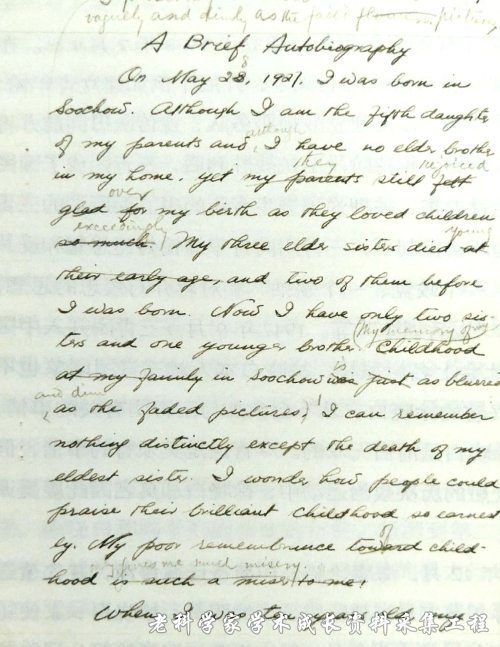 vaguely and dimly as the faded flowers picture,
A Brief Autobiography
On May 228, 1921, I was born in
Soochow. Although I am the fifth daughter
although
of my parents and, I have no elder brother
they rejoiced
in my home, yet my parents still felt
over
glad for my birth as they loved children
exceedingly young
so much. My three elder sisters died at
their early age, and two of them before
I was born. Now I have only two sis-
ters and one younger brother. Childhood
My memory of my
at my family in Soochow was just as blurred
is
and dim
as the faded pictures, I can remember
nothing distinctly except the death of my
eldest sister. I wonder how people could
praise their brilliant childhood so earnest
ly. My poor remembrance toward child-
of
gives me much misery
hood is such a miser to me.
When I was ten years old, my
老科学家学术成长资料采集工程